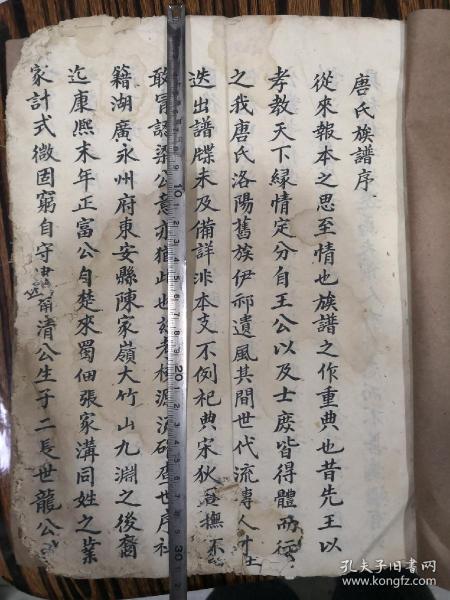 唐氏族譜序
從來報本之思至情也族譜之作重典也昔先王以
孝教天下緣情定分自王公以及士庶皆得體而行
之我唐氏洛陽舊族伊祁遺風其間世代流傳人才
迭出譜牒未及備詳非本支不例祀典宋狄 撫不
敢冒認梁公意亦猶此也 考核源流 查世序祖
籍湖廣永州府東安縣陳家嶺大竹山九淵之後裔
迄康熙末年正富公自楚來蜀佃張家溝同姓之業
家計式微固窮自守 甯清公生子二長世龍公
10
20
30
孔夫子旧书网